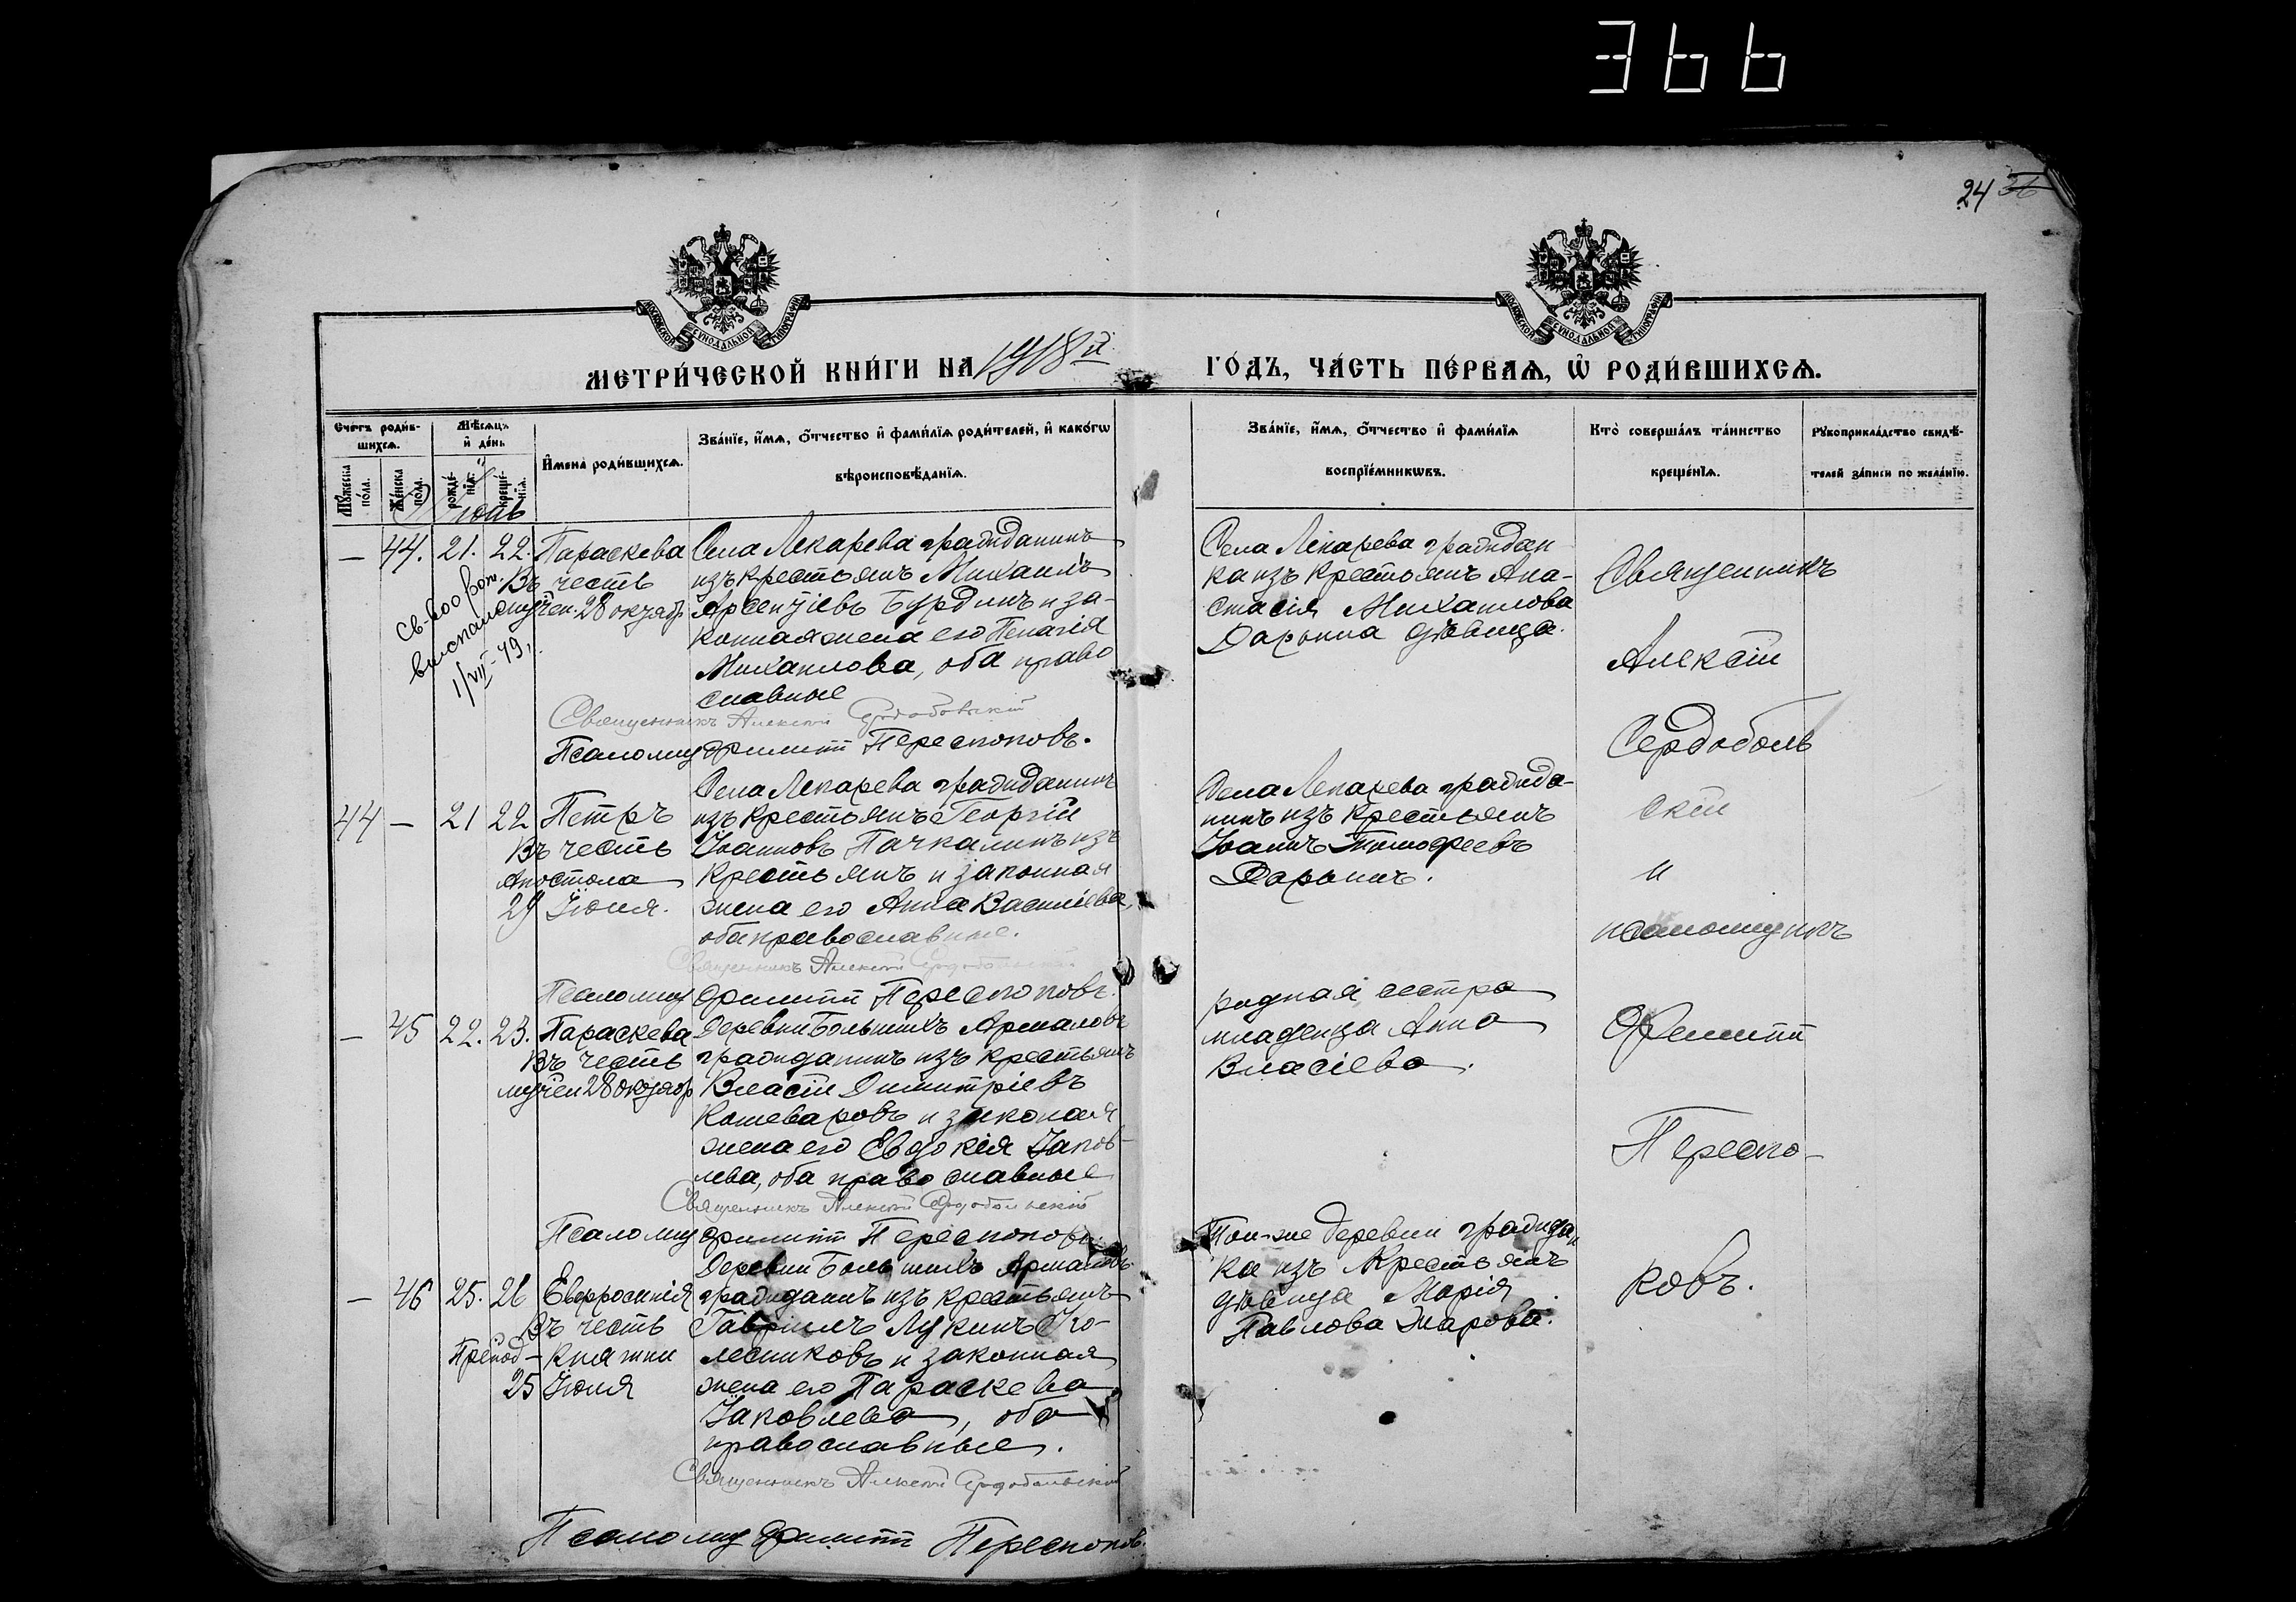 366
24 36
МЕТРИ́ЧЕСКОЙ КНИ́ГИ НА 1918й
ГО́ДЪ, ЧА́СТЬ ПЕ́РВАѦ, Ѡ҆ РОДИ́ВШИХСѦ.
Сче́тъ роди́в-
шихсѧ.
Мꙋ́жеска по́ла.
Же́нска по́ла.
Мѣ́сѧцъ и҆ де́нь
рожде́-
нїѧ.
креще́-
нїѧ.
И҆мена̀ роди́вшихсѧ.
Зва́нїе, и҆́мѧ, ѻ҆́тчество и҆ фами́лїѧ роди́телей, и҆ како́гѡ
вѣроисповѣ́данїѧ.
Зва́нїе, и҆́мѧ, ѻ҆́тчество и҆ фами́лїѧ
воспрїе́мникѡвъ.
Кто̀ соверша́лъ та́инство
креще́нїѧ.
Рꙋкоприкла́дство свидѣ́-
телей за́писи по жела́нїю.
Іюнь
— 44. 21. 22. Параскева
Въ честь
мучен. 28 октябр.
Св-во о рож.
выслано
1/VII-49 г.
Села Лекарева гражданинъ
изъ крестьянъ Михаилъ
Арсентіевъ Бурдинъ и за-
конная жена его Пелагія
Михаилова, оба право
славные
Священникъ Алексій Сердобольскій
Псаломщ Филиппъ Переспоповъ.
Села Лекарева граждан
ка изъ крестьянъ Ана-
стасія Михаилова
Дарьина дѣвица.
44 — 21 22 Петръ
Въ честь
Апостола
29 Іюня.
Села Лекарева гражданинъ
изъ крестьянъ Георгій
Іоанновъ Пачкалинъ изъ
крестьянъ и законная
жена его Анна Василіева,
оба православные.
Священникъ Алексій Сердобольскій
Псаломщ Филиппъ Переспоповъ.
Села Лекарева гражда-
нинъ изъ крестьянъ
Іоаннъ Тимофеевъ
Дарьинъ.
— 45 22. 23. Параскева
Въ честь
мучен 28 октябр
Деревни Большихъ Армаловъ
гражданинъ изъ крестьянъ
Власій Димитріевъ
Кошеваровъ и законая
жена его Евдокія Іаков-
лева, оба православные
Священникъ Алексій Сердобольскій
Псаломщ Филиппъ Переспоповъ.
родная сестра
младенца Анна
Власіева.
— 46 25. 26 Евфросинія
Въ честь
Препод - княжни
25 Іюня
Деревни Большихъ Армаловъ
гражданинъ изъ крестьянъ
Гавріилъ Лукинъ Ко-
лесниковъ и законная
жена его Параскева
Іаковлева, оба
православные.
Священникъ Алексій Сердобольскій
Псаломщ Филиппъ Переспоповъ.
Той-же деревни граждан
ка изъ крестьянъ
дѣвица Марія
Павлова Жарова.
Священникъ
Алексій
Сердоболь
скій
и
псаломщикъ
Филиппъ
Переспо-
повъ.